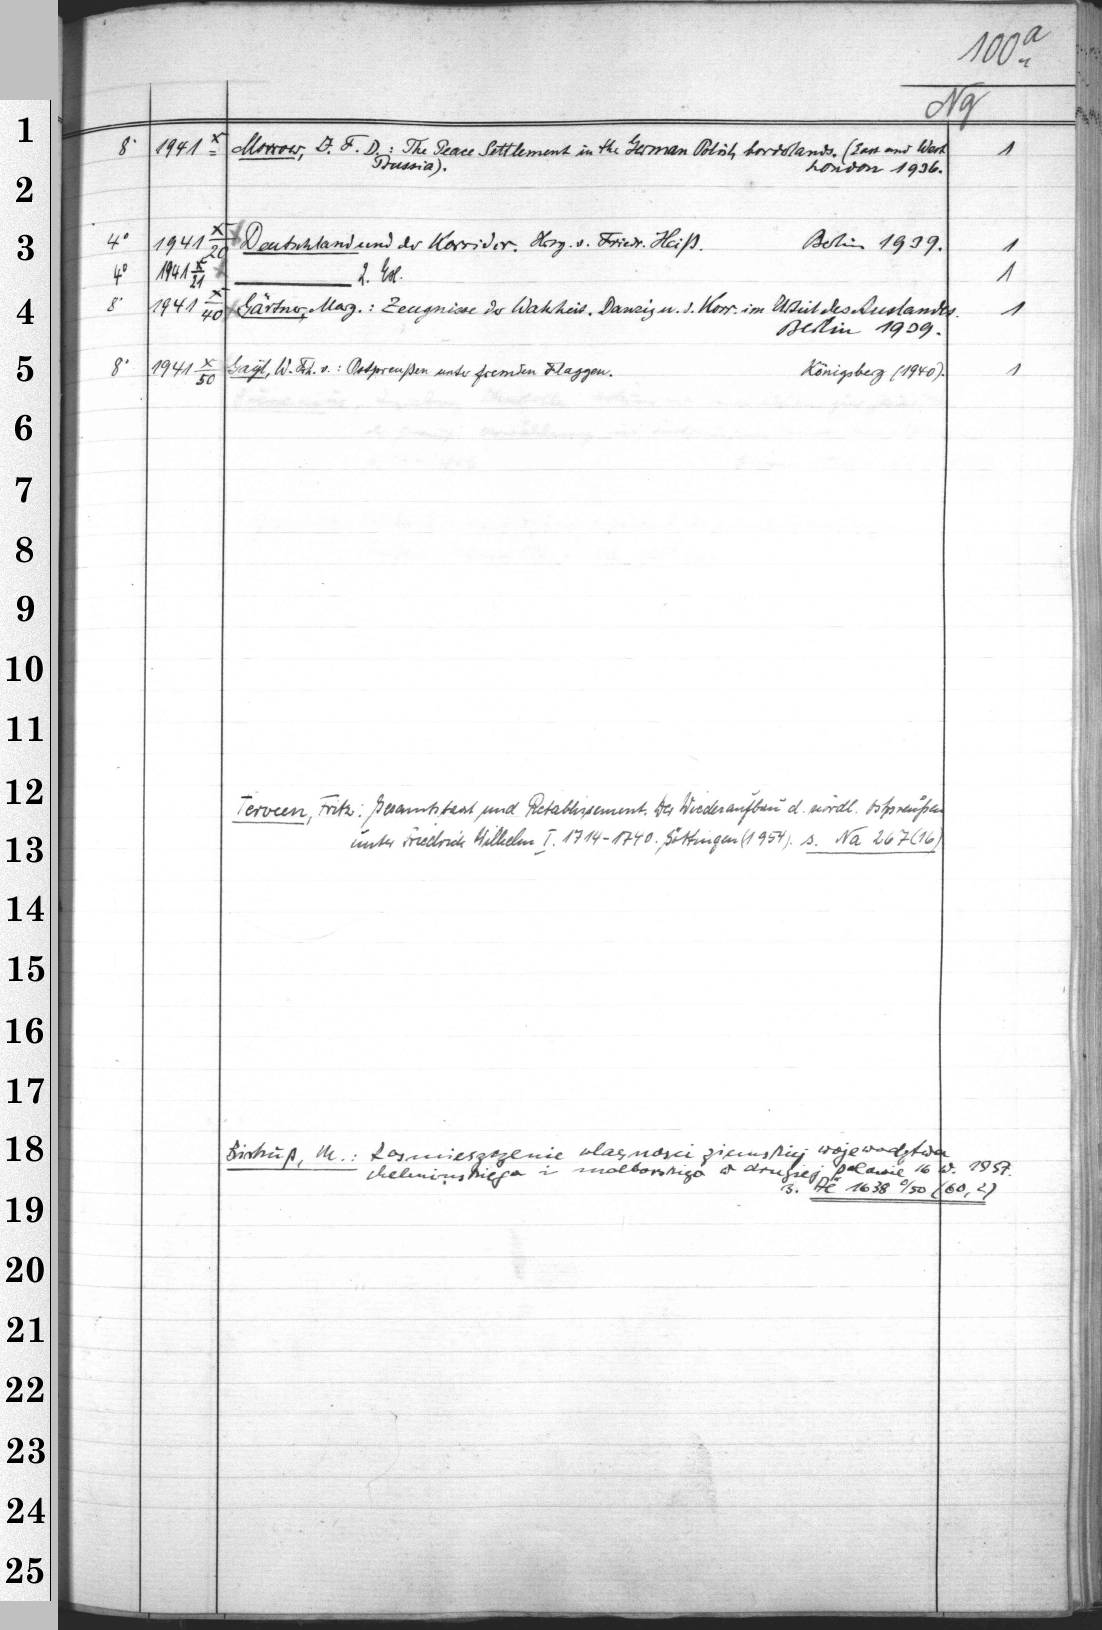 100a
Nq
1
8° 1941 x Morrow, I. F. D.: The Peace Settlement in the German Polish borderlands. (East and West 1
Prussia). London 1936.
2
3
4° 1941 x/20 Deutschland und der Korridor. Hrsg. v. Friedr. Heiß. Berlin 1939. 1
4° 1941 x/21 ——— 2. Ex. 1
4
8° 1941 x/40 Gärtner, Marg.: Zeugnisse der Wahrheit. Danzig u. d. Korr. im Urteil des Auslandes. 1
Berlin 1939.
5
8° 1941 x/50 Gayl, W. Frh. v.: Ostpreußen unter fremden Flaggen. Königsberg (1940). 1
6
7
8
9
10
11
12
Terveen, Fritz: Gesamtstaat und Retablissement. Der Wiederaufbau d. nördl. Ostpreußen
13
unter Friedrich Wilhelm I. 1714-1740. Göttingen (1954). s. Na 267(16)
14
15
16
17
18
Biskup, M.: Rozmieszczenie własności ziemskiej województwa
chełmińskiego i malborskiego w drugiej połowie 16 w. 1957.
s. 1638 a/50 (60,2)
19
20
21
22
23
24
25